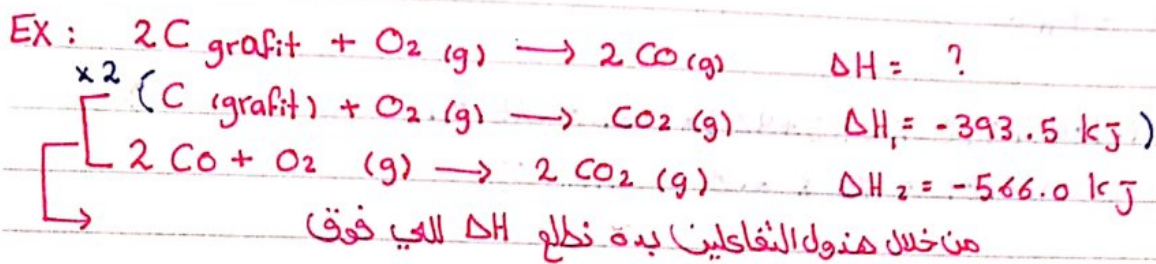 EX : 2C grafit + O2 (g) → 2 CO (g) ΔH = ?
x2 (C (grafit) + O2 (g) → CO2 (g) ΔH1 = -393.5 kJ)
2 Co + O2 (g) → 2 CO2 (g) ΔH2 = -566.0 kJ
من خلال هدول التفاعلين بدة نطلع ΔH اللي فوق